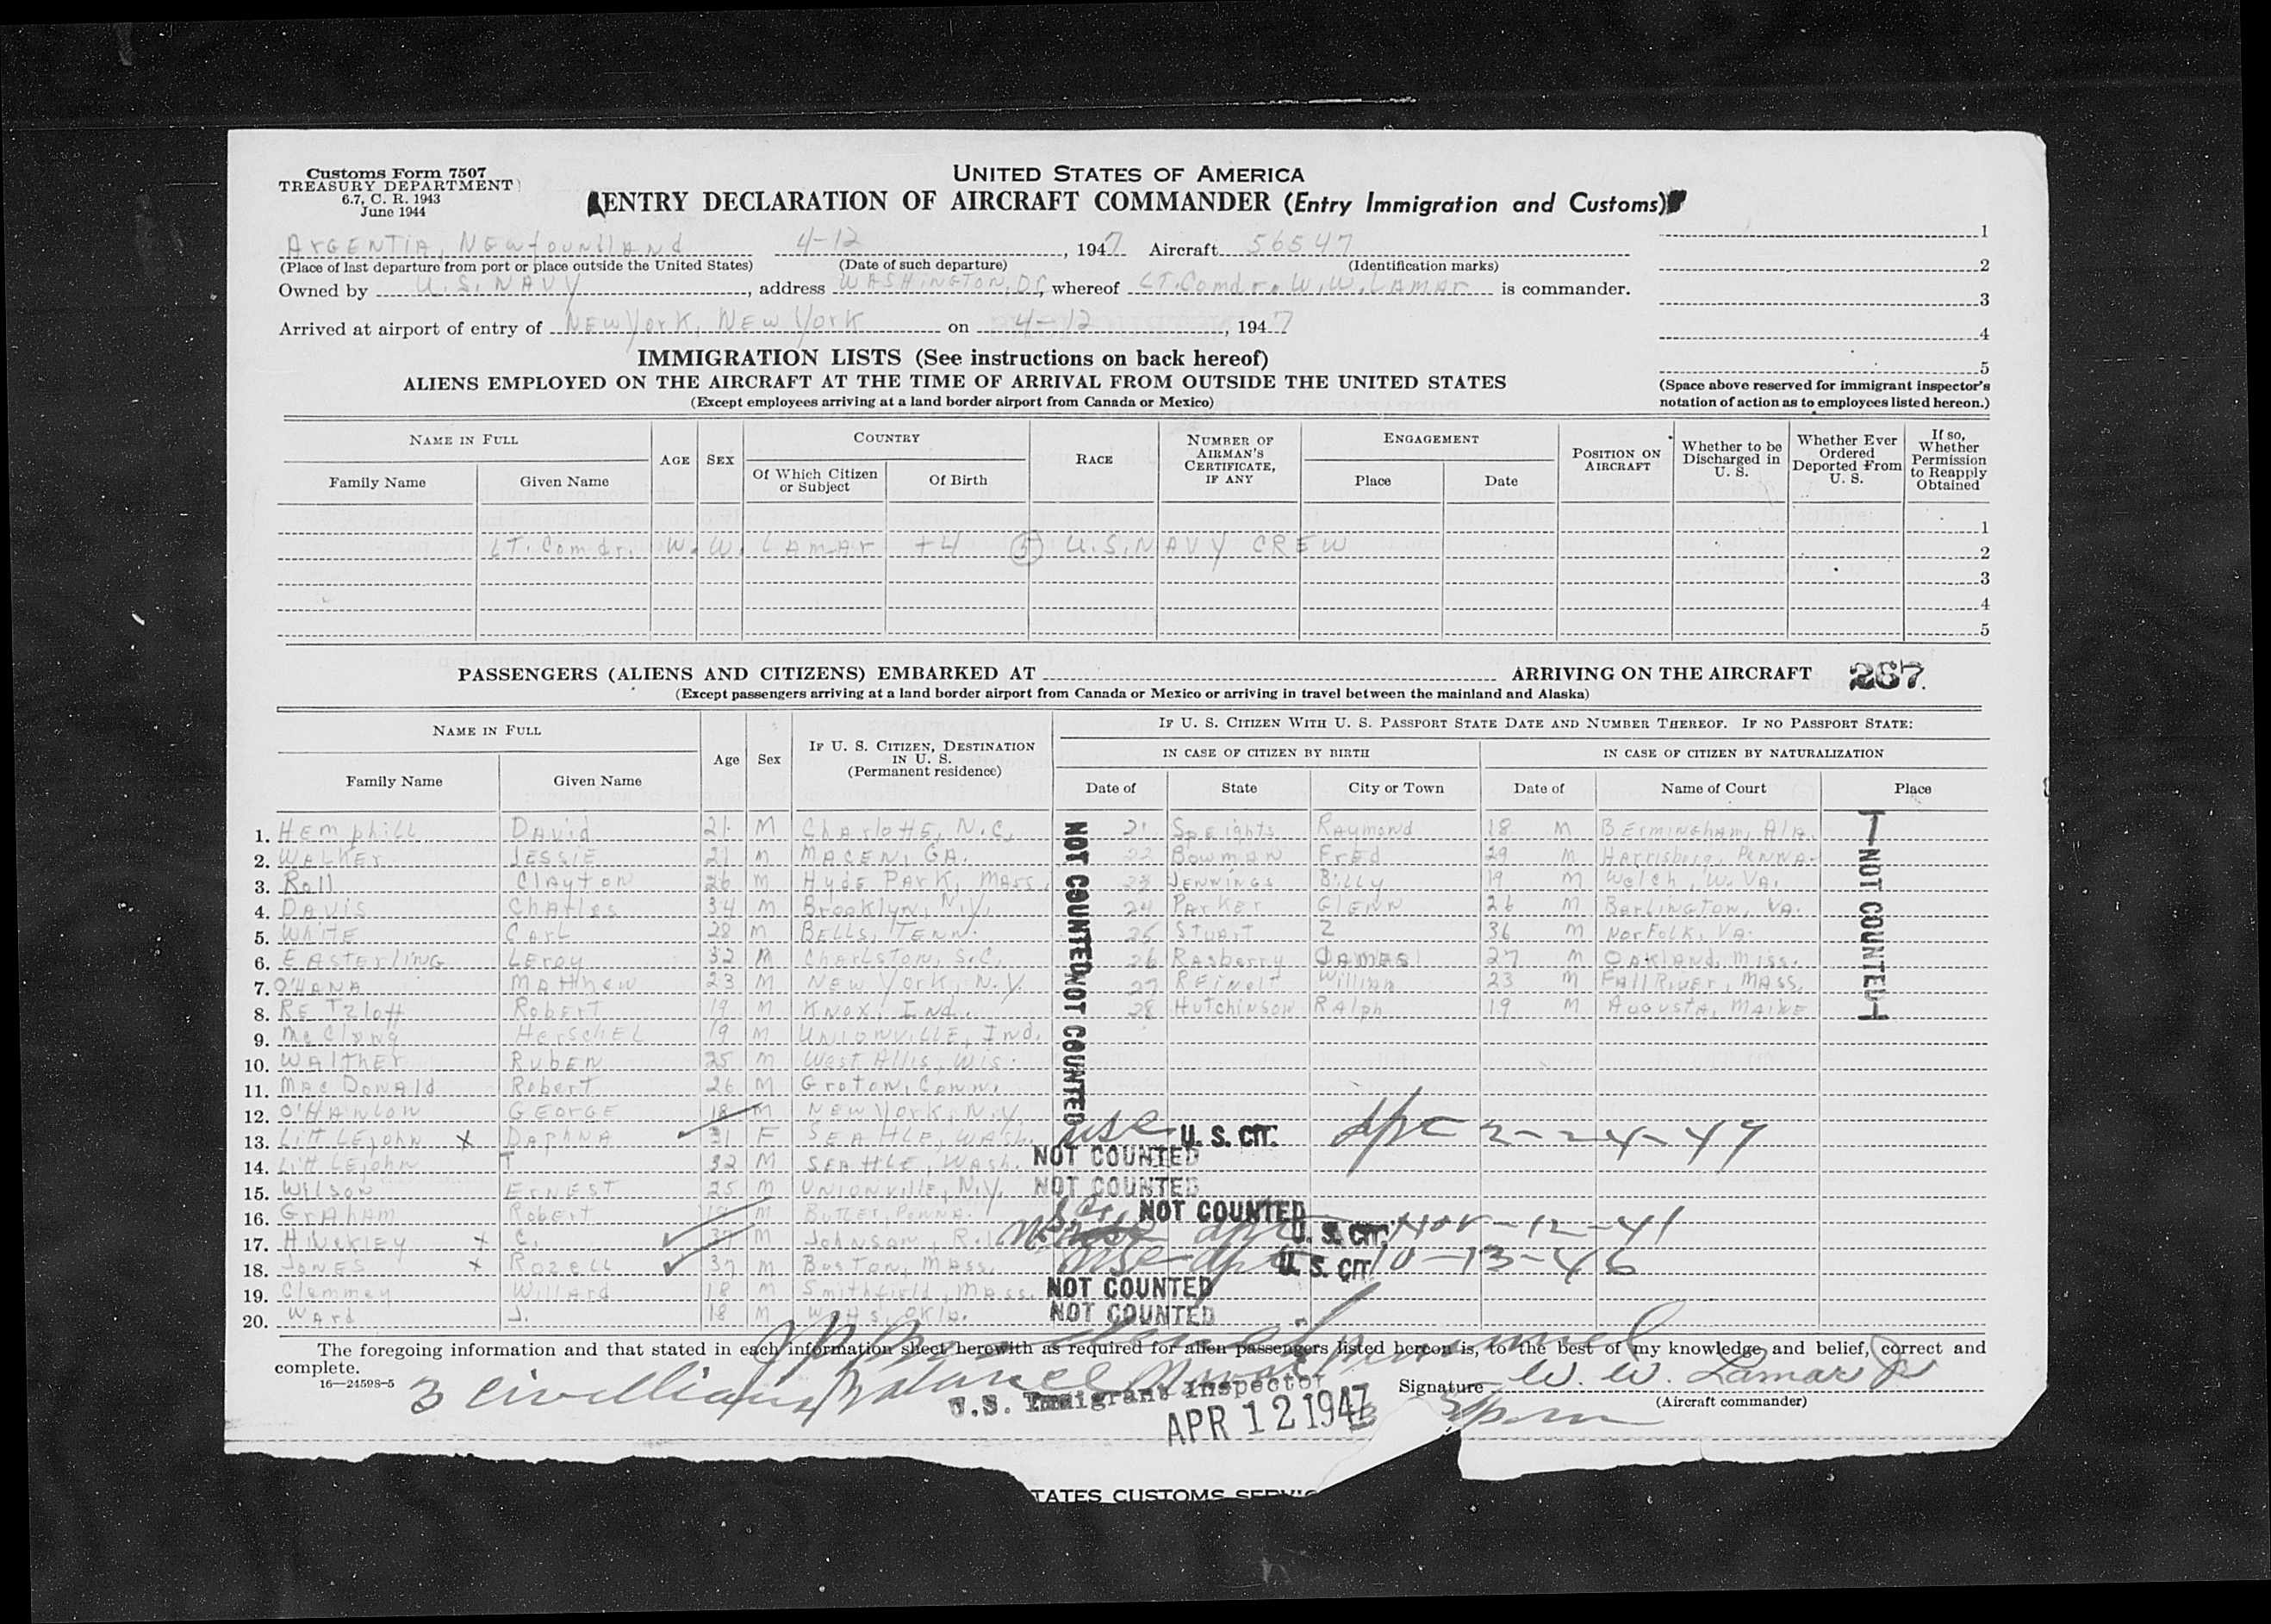 Customs Form 7507
TREASURY DEPARTMENT
6.7, C. R. 1943
June 1944
UNITED STATES OF AMERICA
ENTRY DECLARATION OF AIRCRAFT COMMANDER (Entry Immigration and Customs)
ARGENTIA, NEWfoundland 4-12, 1947 Aircraft 56547
(Place of last departure from port or place outside the United States) (Date of such departure) (Identification marks)
Owned by U.S. NAVY, address WASHINGTON, DC, whereof LT. Comdr. W. W. LAMAR is commander.
Arrived at airport of entry of NEW York, NEW York on 4-12, 1947
1
2
3
4
5
(Space above reserved for immigrant inspector's notation of action as to employees listed hereon.)
IMMIGRATION LISTS (See instructions on back hereof)
ALIENS EMPLOYED ON THE AIRCRAFT AT THE TIME OF ARRIVAL FROM OUTSIDE THE UNITED STATES
(Except employees arriving at a land border airport from Canada or Mexico)
NAME IN FULL AGE SEX COUNTRY RACE NUMBER OF AIRMAN'S CERTIFICATE, IF ANY ENGAGEMENT POSITION ON AIRCRAFT Whether to be Discharged in U. S. Whether Ever Ordered Deported From U. S. If so, Whether Permission to Reapply Obtained
Family Name Given Name Of Which Citizen or Subject Of Birth Place Date
1
LT. Comdr. W. W. LAMAR +4 (5) U.S. NAVY CREW 2
3
4
5
PASSENGERS (ALIENS AND CITIZENS) EMBARKED AT ARRIVING ON THE AIRCRAFT 267
(Except passengers arriving at a land border airport from Canada or Mexico or arriving in travel between the mainland and Alaska)
NAME IN FULL Age Sex IF U. S. CITIZEN, DESTINATION IN U. S. (Permanent residence) IF U. S. CITIZEN WITH U. S. PASSPORT STATE DATE AND NUMBER THEREOF. IF NO PASSPORT STATE:
IN CASE OF CITIZEN BY BIRTH IN CASE OF CITIZEN BY NATURALIZATION
Family Name Given Name Date of State City or Town Date of Name of Court Place
1. Hemphill David 21 M Charlotte, N.C. 21 Speights Raymond 18 M Bermingham, Ala.
2. WALKER JESSIE 21 M MACEN, GA. 22 Bowman Fred 29 M Harrisberg, PENNA.
3. Roll Clayton 26 M Hyde Park, Mass. 23 JENNINGS Billy 19 M Welch, W. VA.
4. DAVIS Charles 34 M Brooklyn, N.Y. 24 PARKER GLENN 26 M Barlington, VA.
5. White Carl 28 M BELLS, TENN. 25 STUART Z 36 M Norfolk, VA.
6. EASTERLING LEroy 32 M CHARLSTON, S.C. 26 Rasberry JAMES 27 M OAKLAND, MISS.
7. O'HANA MATTHEW 23 M NEW York, N.Y. 27 REINOLT William 23 M Fall River, MASS.
8. RETZloff Robert 19 M KNOX, Ind. 28 Hutchinson RAlph 19 M AUGUSTA, MAINE
9. McClung HerschEL 19 M UNIONVILLE, Ind.
10. WALTHER RUBEN 25 M West Allis, Wis.
11. Mac Donald Robert 26 M Groton, Conn.
12. O'HANLON GEORGE 18 M NEW York, N.Y.
13. LittLEjohn X DAPHNA 31 F SEATTLE, WASH. U. S. CIT. 2-24-47
14. LittLEjohn T 32 M SEATTLE, WASH. NOT COUNTED
15. Wilson ERNEST 25 M UNIONVILLE, N.Y. NOT COUNTED
16. GrAham Robert 18 M Butler, PENNA. NOT COUNTED
17. HINCKLEY X C. 37 M Johnson, R.I. U. S. CIT. Nov-12-41
18. JONES X ROZELL 37 M Boston, Mass. U. S. CIT. 10-13-46
19. Clemmey Willard 18 M Smithfield, Mass. NOT COUNTED
20. WArd J. 18 M Okla. NOT COUNTED
NOT COUNTED
NOT COUNTED
NOT COUNTED
The foregoing information and that stated in each information sheet herewith as required for alien passengers listed hereon is, to the best of my knowledge and belief, correct and complete.
16—24598-5
3 civillians, Balance Naval personnel
U.S. Immigrant Inspector
APR 12 1947
Signature W. W. Lamar Jr
(Aircraft commander)
TATES CUSTOMS